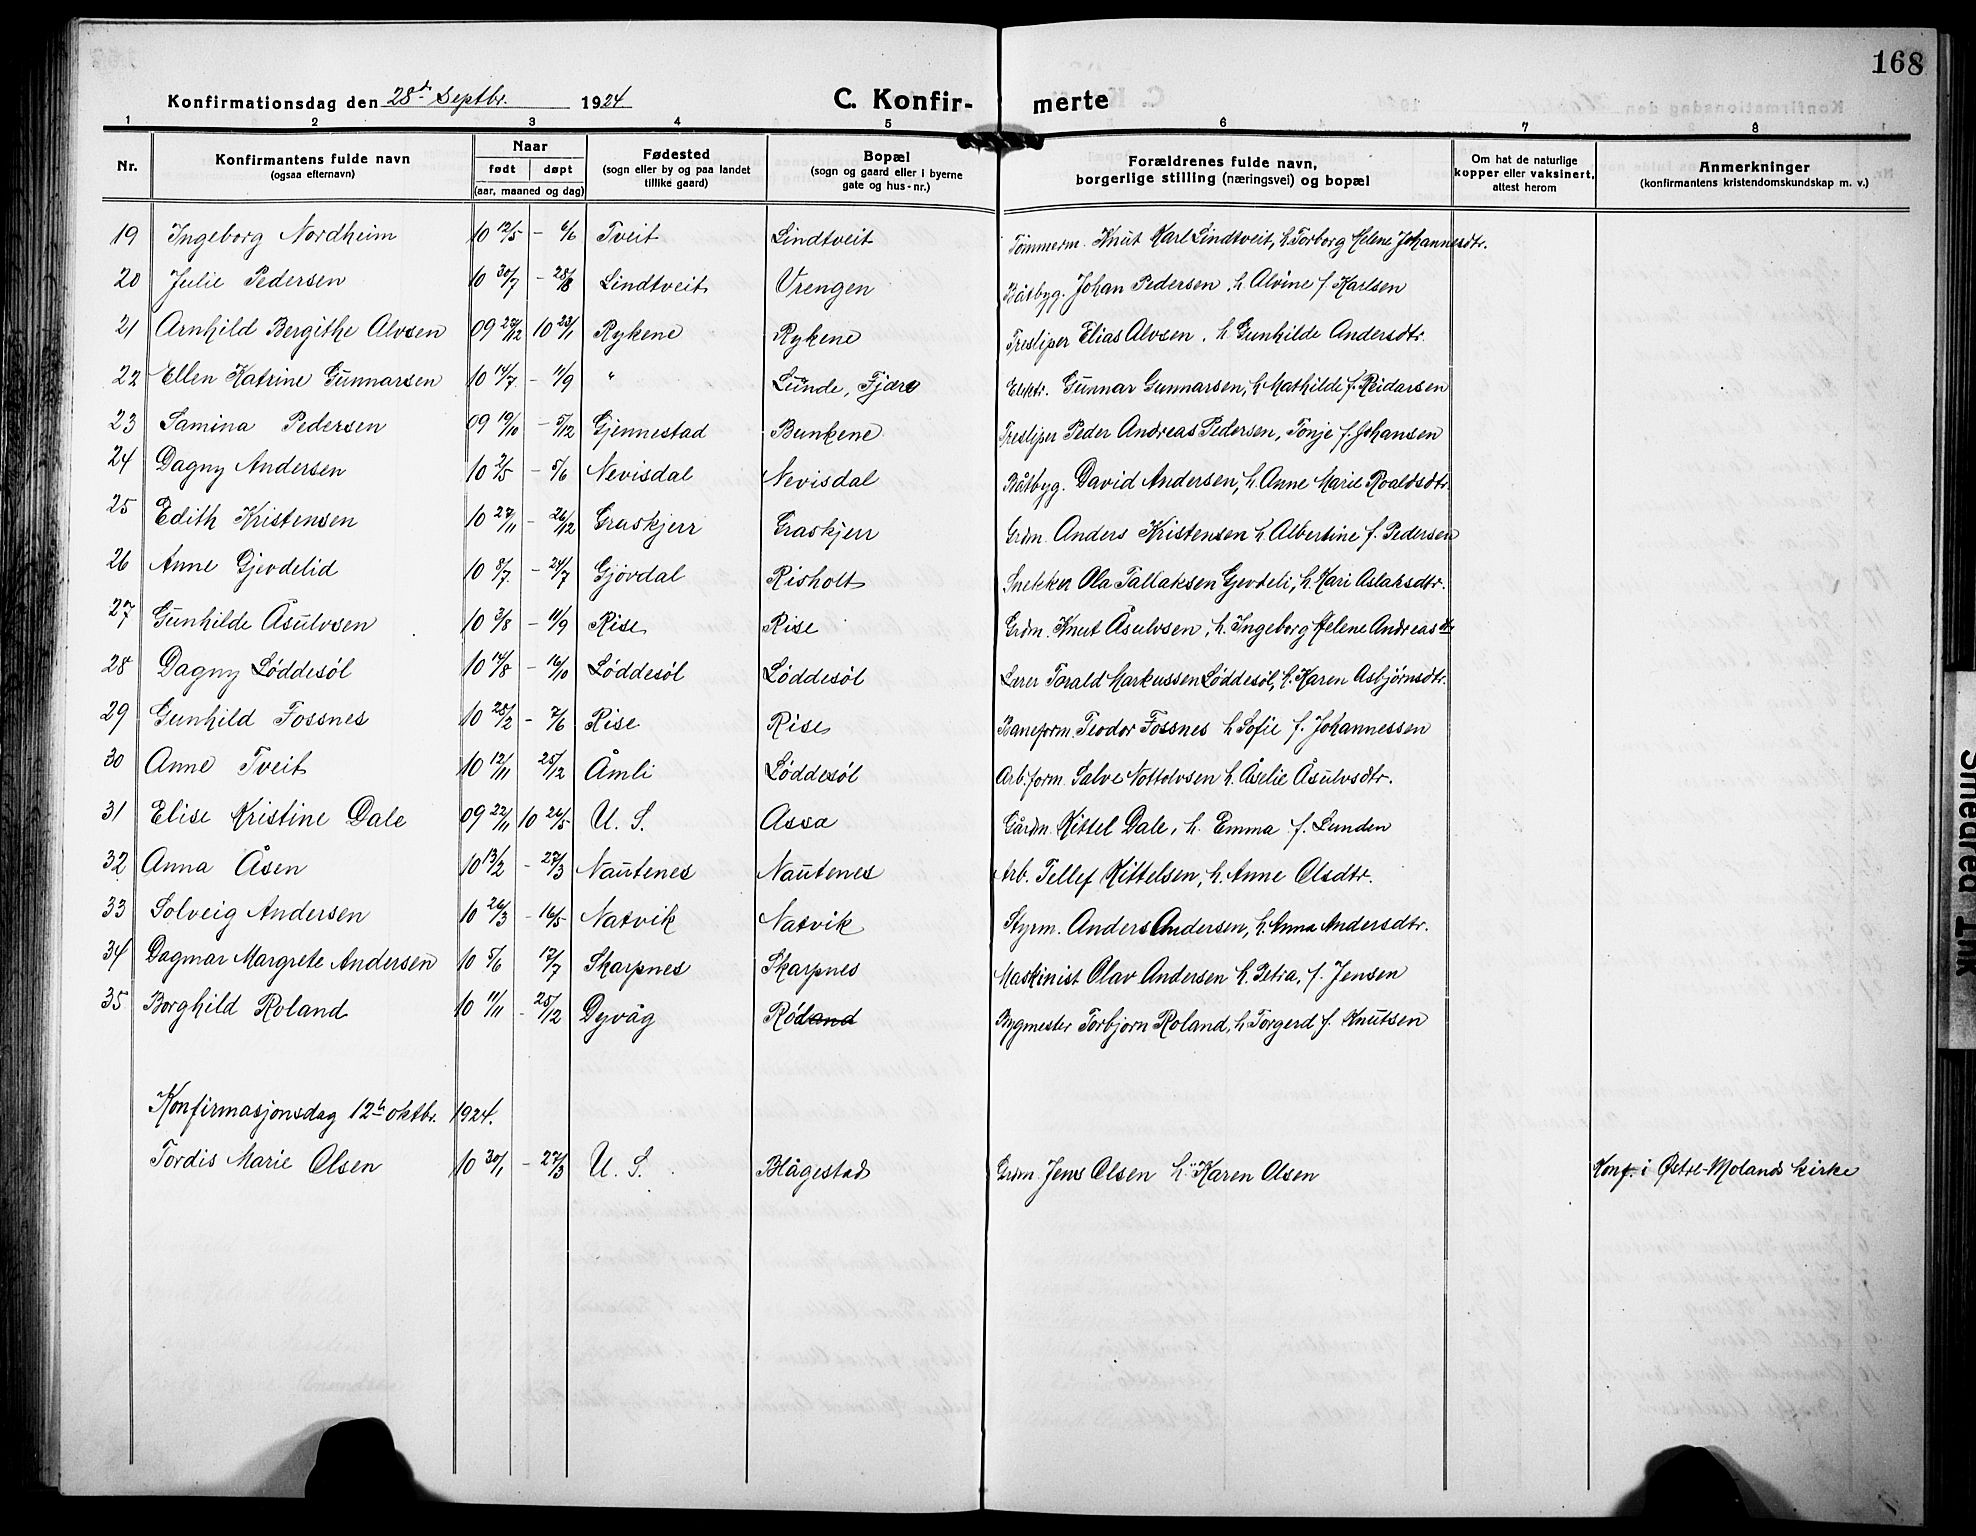 168
Konfirmationsdag den 28de Septbr. 1924 C. Konfir- merte
1 2 3 4 5 6 7 8
Nr. Konfirmantens fulde navn (ogsaa efternavn) Naar født døpt (aar, maaned og dag) Fødested (sogn eller by og paa landet tillike gaard) Bopæl (sogn og gaard eller i byerne gate og hus-nr.) Forældrenes fulde navn, borgerlige stilling (næringsvei) og bopæl Om hat de naturlige kopper eller vaksinert, attest herom Anmerkninger (konfirmantens kristendomskundskap m. v.)
19 Ingeborg Nordheim 10 12/5 - 6/6 Tveit Lindtveit Tømmerm. Knut Karl Lindtveit, h. Torborg Helene Johannesdtr.
20 Julie Pedersen 10 30/7 - 28/8 Lindtveit Vrengen Båtbyg. Johan Pedersen, h. Alvine f. Karlsen
21 Arnhild Bergithe Alvsen 09 27/12 10 23/1 Rykene Rykene Tresliper Elias Alvsen, h. Gunhilde Andersdtr.
22 Ellen Katrine Gunnarsen 10 14/7 - 11/9 " Lunde, Fjære Elektr. Gunnar Gunnarsen, h. Mathilde f. Reidarsen
23 Samina Pedersen 09 19/10 - 5/12 Gjennestad Bunkene Tresliper Peder Andreas Pedersen, Tonje f. Johansen
24 Dagny Andersen 10 2/5 - 5/6 Nevisdal Nevisdal Båtbyg. David Andersen, h. Anne Marie Roaldsdtr.
25 Edith Kristensen 10 27/11 - 26/12 Graskjerr Graskjerr Grdm. Anders Kristensen h. Albertine f. Pedersen
26 Anne Gjevdelid 10 8/7 - 24/7 Gjøvdal Risholt Snekker Ola Tallaksen Gjevdeli, h. Kari Aslaksdtr.
27 Gunhilde Åsulvsen 10 3/8 - 11/9 Rise Rise Grdm. Knut Åsulvsen, h. Ingeborg Helene Andreasdtr
28 Dagny Løddesøl 10 14/8 - 16/10 Løddesøl Løddesøl Lærer Torald Markussen Løddesøl, h. Karen Asbjørnsdtr.
29 Gunhild Fossnes 10 25/2 - 7/6 Rise Rise Baneform. Teodor Fossnes h. Sofie f. Johannessen
30 Anne Tveit 10 12/11 25/12 Åmli Løddesøl Arb.form. Salve Nottolvsen h. Åselie Åsulvsdtr.
31 Elise Kristine Dale 09 22/11 10 26/5 U. S. Assa Gårdm. Kittel Dale, h. Emma f. Lunden
32 Anna Åsen 10 13/2 - 27/3 Nautenes Nautenes Arb. Tellef Kittelsen, h. Anne Olsdtr.
33 Solveig Andersen 10 26/3 - 16/5 Natvik Natvik Styrm. Anders Andersen, h. Anna Andersdtr.
34 Dagmar Margrete Andersen 10 5/6 17/7 Skarpnes Skarpnes Maskinist Olav Andersen h. Petra, f. Jensen
35 Borghild Roland 10 11/11 - 25/12 Dyvåg Bygmester Torbjørn Roland, h. Torgerd f. Knutsen
Konfirmasjonsdag 12te oktbr. 1924.
Tordis Marie Olsen 10 30/1 - 27/3 U. S. Blågestad Grdm. Jens Olsen h. Karen Olsen Konf. i Østre-Molands kirke